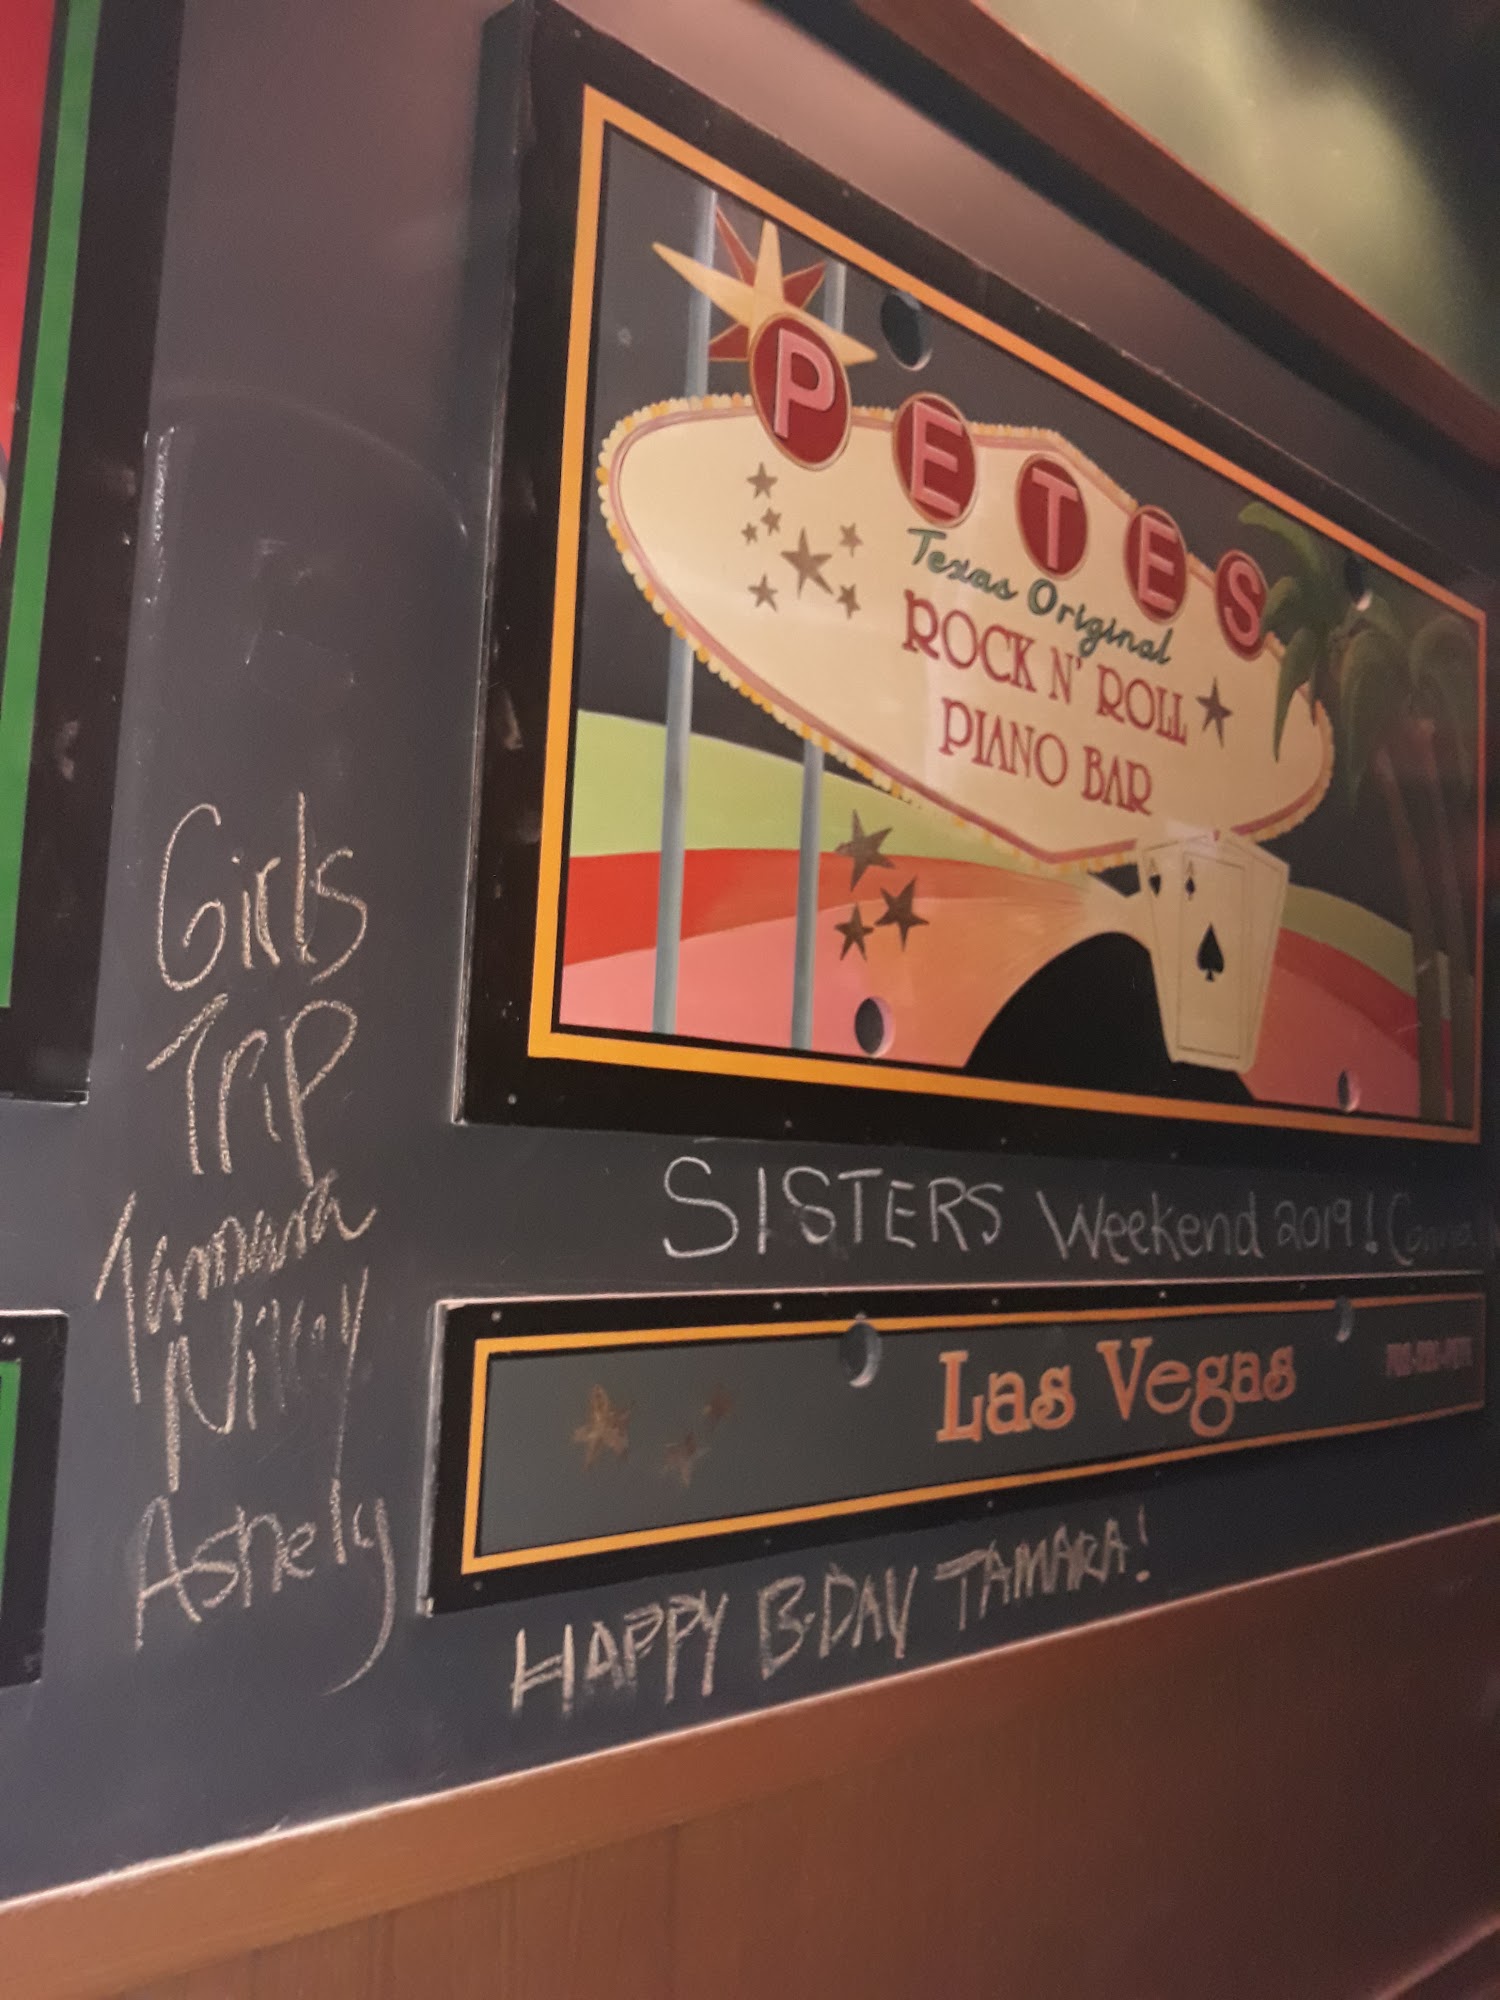 PETES
Texas Original
ROCK N' ROLL
PIANO BAR
A A
Girls
Trip
Tamara
Nikky
Ashely
SISTERS Weekend 2019!
Las Vegas
HAPPY B-DAY TAMARA!